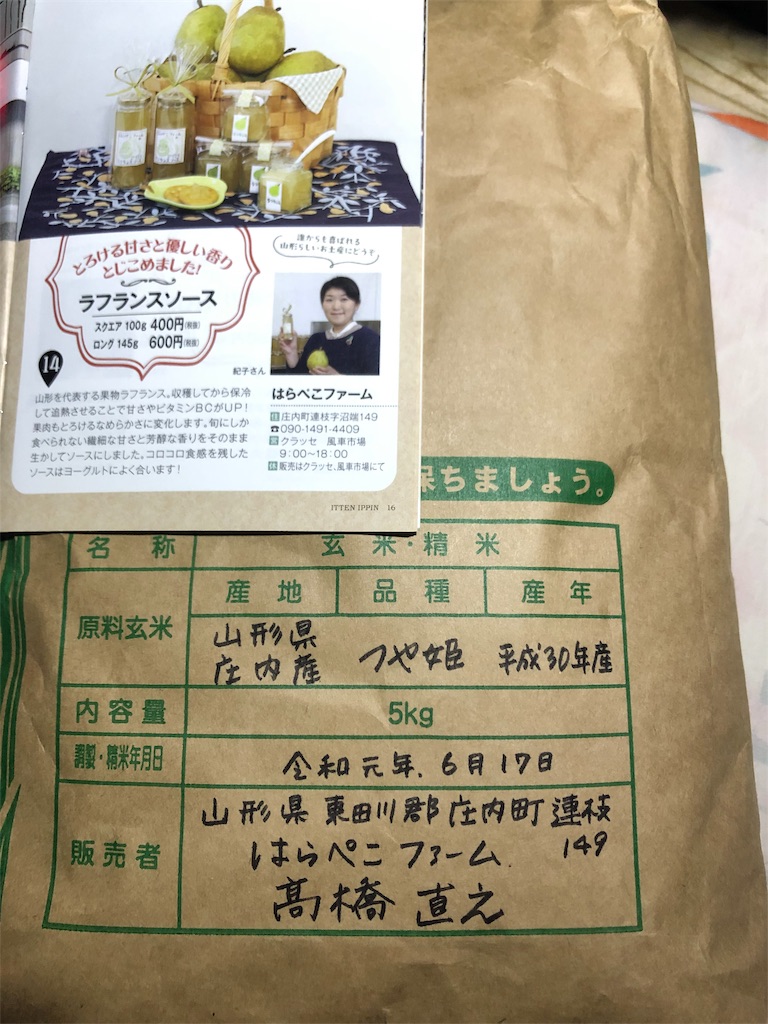 とろける甘さと優しい香り
とじこめました!
ラフランスソース
スクエア 100g 400円(税抜)
ロング 145g 600円(税抜)
誰からも喜ばれる
山形らしいお土産にどうぞ
紀子さん
14
山形を代表する果物ラフランス。収穫してから保冷
して追熟させることで甘さやビタミンBCがUP!
果肉もとろけるなめらかさに変化します。旬にしか
食べられない繊細な甘さと芳醇な香りをそのまま
生かしてソースにしました。コロコロ食感を残した
ソースはヨーグルトによく合います!
はらぺこファーム
住 庄内町連枝字沼端149
☎090-1491-4409
営 クラッセ 風車市場
9:00〜18:00
休 販売はクラッセ、風車市場にて
ITTEN IPPIN 16
保ちましょう。
名称 玄米・精米
原料玄米 産地 品種 産年
山形県
庄内産 つや姫 平成30年産
内容量 5kg
調製・精米年月日 令和元年.6月17日
販売者 山形県東田川郡庄内町連枝
149
はらぺこファーム
髙橋 直之